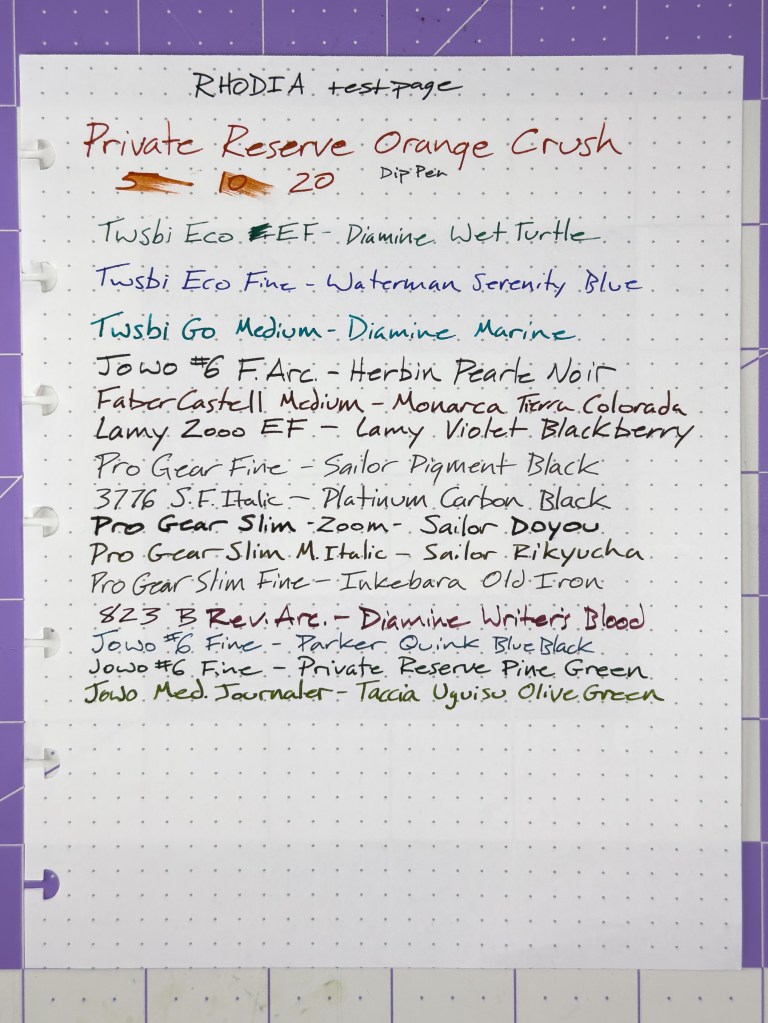 RHODIA testpage
Private Reserve Orange Crush
5 10 20 Dip Pen
Twsbi Eco EF - Diamine Wet Turtle
Twsbi Eco Fine - Waterman Serenity Blue
Twsbi Go Medium - Diamine Marine
Jowo #6 F. Arc. - Herbin Pearle Noir
Faber Castell Medium - Monarca Tierra Colorada
Lamy 2000 EF - Lamy Violet Blackberry
Pro Gear Fine - Sailor Pigment Black
3776 S.F. Italic - Platinum Carbon Black
Pro Gear Slim - Zoom - Sailor Doyou
Pro Gear Slim M. Italic - Sailor Rikyucha
Pro Gear Slim Fine - Inkebara Old Iron
823 B Rev. Arc. - Diamine Writer's Blood
Jowo #6 Fine - Parker Quink Blue Black
Jowo #6 Fine - Private Reserve Pine Green
Jowo Med. Journaler - Taccia Uguisu Olive Green